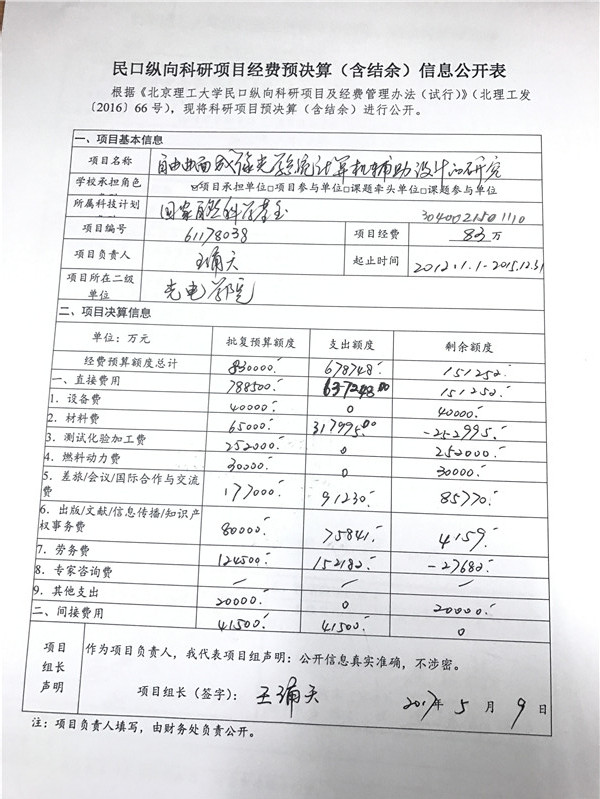 民口纵向科研项目经费预决算（含结余）信息公开表
根据《北京理工大学民口纵向科研项目及经费管理办法（试行）》（北理工发
〔2016〕66 号），现将科研项目预决算（含结余）进行公开。
一、项目基本信息
项目名称 自由曲面成像光学系统计算机辅助设计的研究
学校承担角色 ☑项目承担单位□项目参与单位□课题牵头单位□课题参与单位
所属科技计划 国家自然科学基金 3040021501110
项目编号 61178038 项目经费 83万
项目负责人 王涌天 起止时间 2012.1.1-2015.12.31
项目所在二级
单位 光电学院
二、项目决算信息
单位：万元 批复预算额度 支出额度 剩余额度
经费预算额度总计 830000.- 678748.- 151252.-
一、直接费用 788500.- 637248.00 151252.-
1．设备费 40000.- 0 40000.-
2．材料费 65000.- 317995.00 -252995.-
3．测试化验加工费 252000.- 0 252000.-
4．燃料动力费 30000.- 0 30000.-
5．差旅/会议/国际合作与交流
费 177000.- 91230.- 85770.-
6．出版/文献/信息传播/知识产
权事务费 80000.- 75841.- 4159.-
7．劳务费 124500.- 152182.- -27682.-
8．专家咨询费 — — —
9．其他支出 20000.- 0 20000.-
二、间接费用 41500.- 41500.- 0
项目
组长
声明
作为项目负责人，我代表项目组声明：公开信息真实准确，不涉密。
项目组长（签字）： 王涌天 2017年 5 月 9 日
注：项目负责人填写，由财务处负责公开。